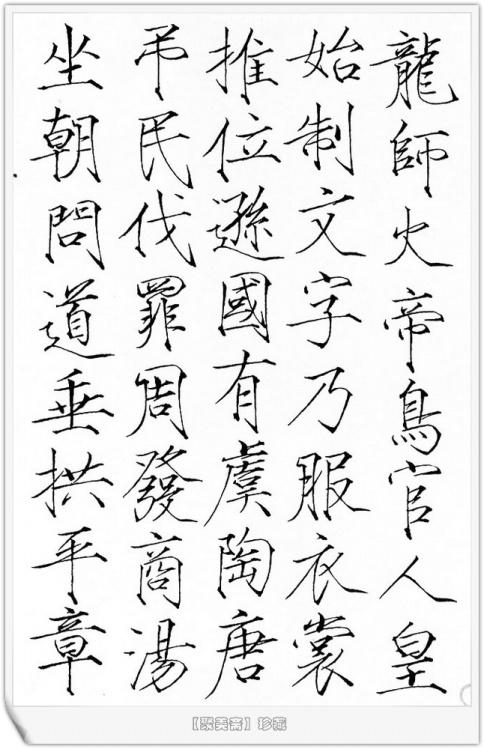 龍師火帝鳥官人皇
始制文字乃服衣裳
推位遜國有虞陶唐
弔民伐罪周發商湯
坐朝問道垂拱平章
【聚美斋】珍藏